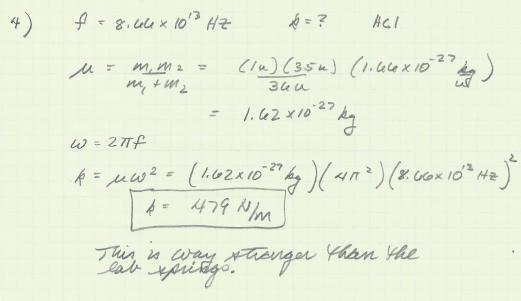 4) f = 8.66 x 10¹³ HZ k = ? HCl
μ = m₁m₂ / m₁+m₂ = (1u)(35u) / 36u (1.66x10⁻²⁷ kg/u)
= 1.62 x10⁻²⁷ kg
ω = 2πf
k = μω² = (1.62x10⁻²⁷ kg)(4π²)(8.66x10¹³ HZ)²
k = 479 N/m
This is way stronger than the
lab springs.